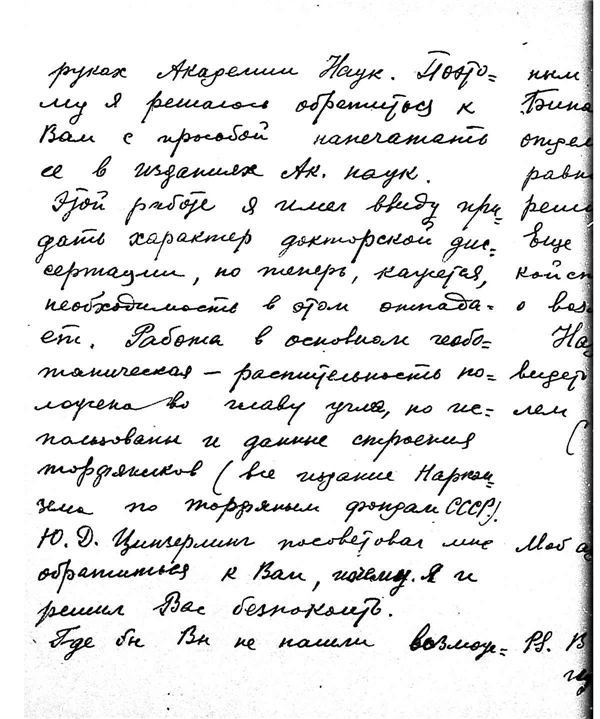 руках Академии Наук. Поэто-
му я решаюсь обратиться к
Вам с просьбой напечатать
ее в изданиях Ак. наук.
Этой работе я имел ввиду при-
дать характер докторской дис-
сертации, но теперь, кажется,
необходимость в этом отпада-
ет. Работа в основном геобо-
таническая – растительность по-
ложена во главу угла, но ис-
пользованы и данные строения
торфяников (все издание Нарком-
зема по торфяным фондам СССР).
Ю. Д. Цинзерлинг посоветовал мне
обратиться к Вам, почему я и
решил Вас безпокоить.
Где бы Вы не нашли возмож-
ным
отдел
равн
реш
еще
о воз
видеть
лем (
Моб а
PS. В